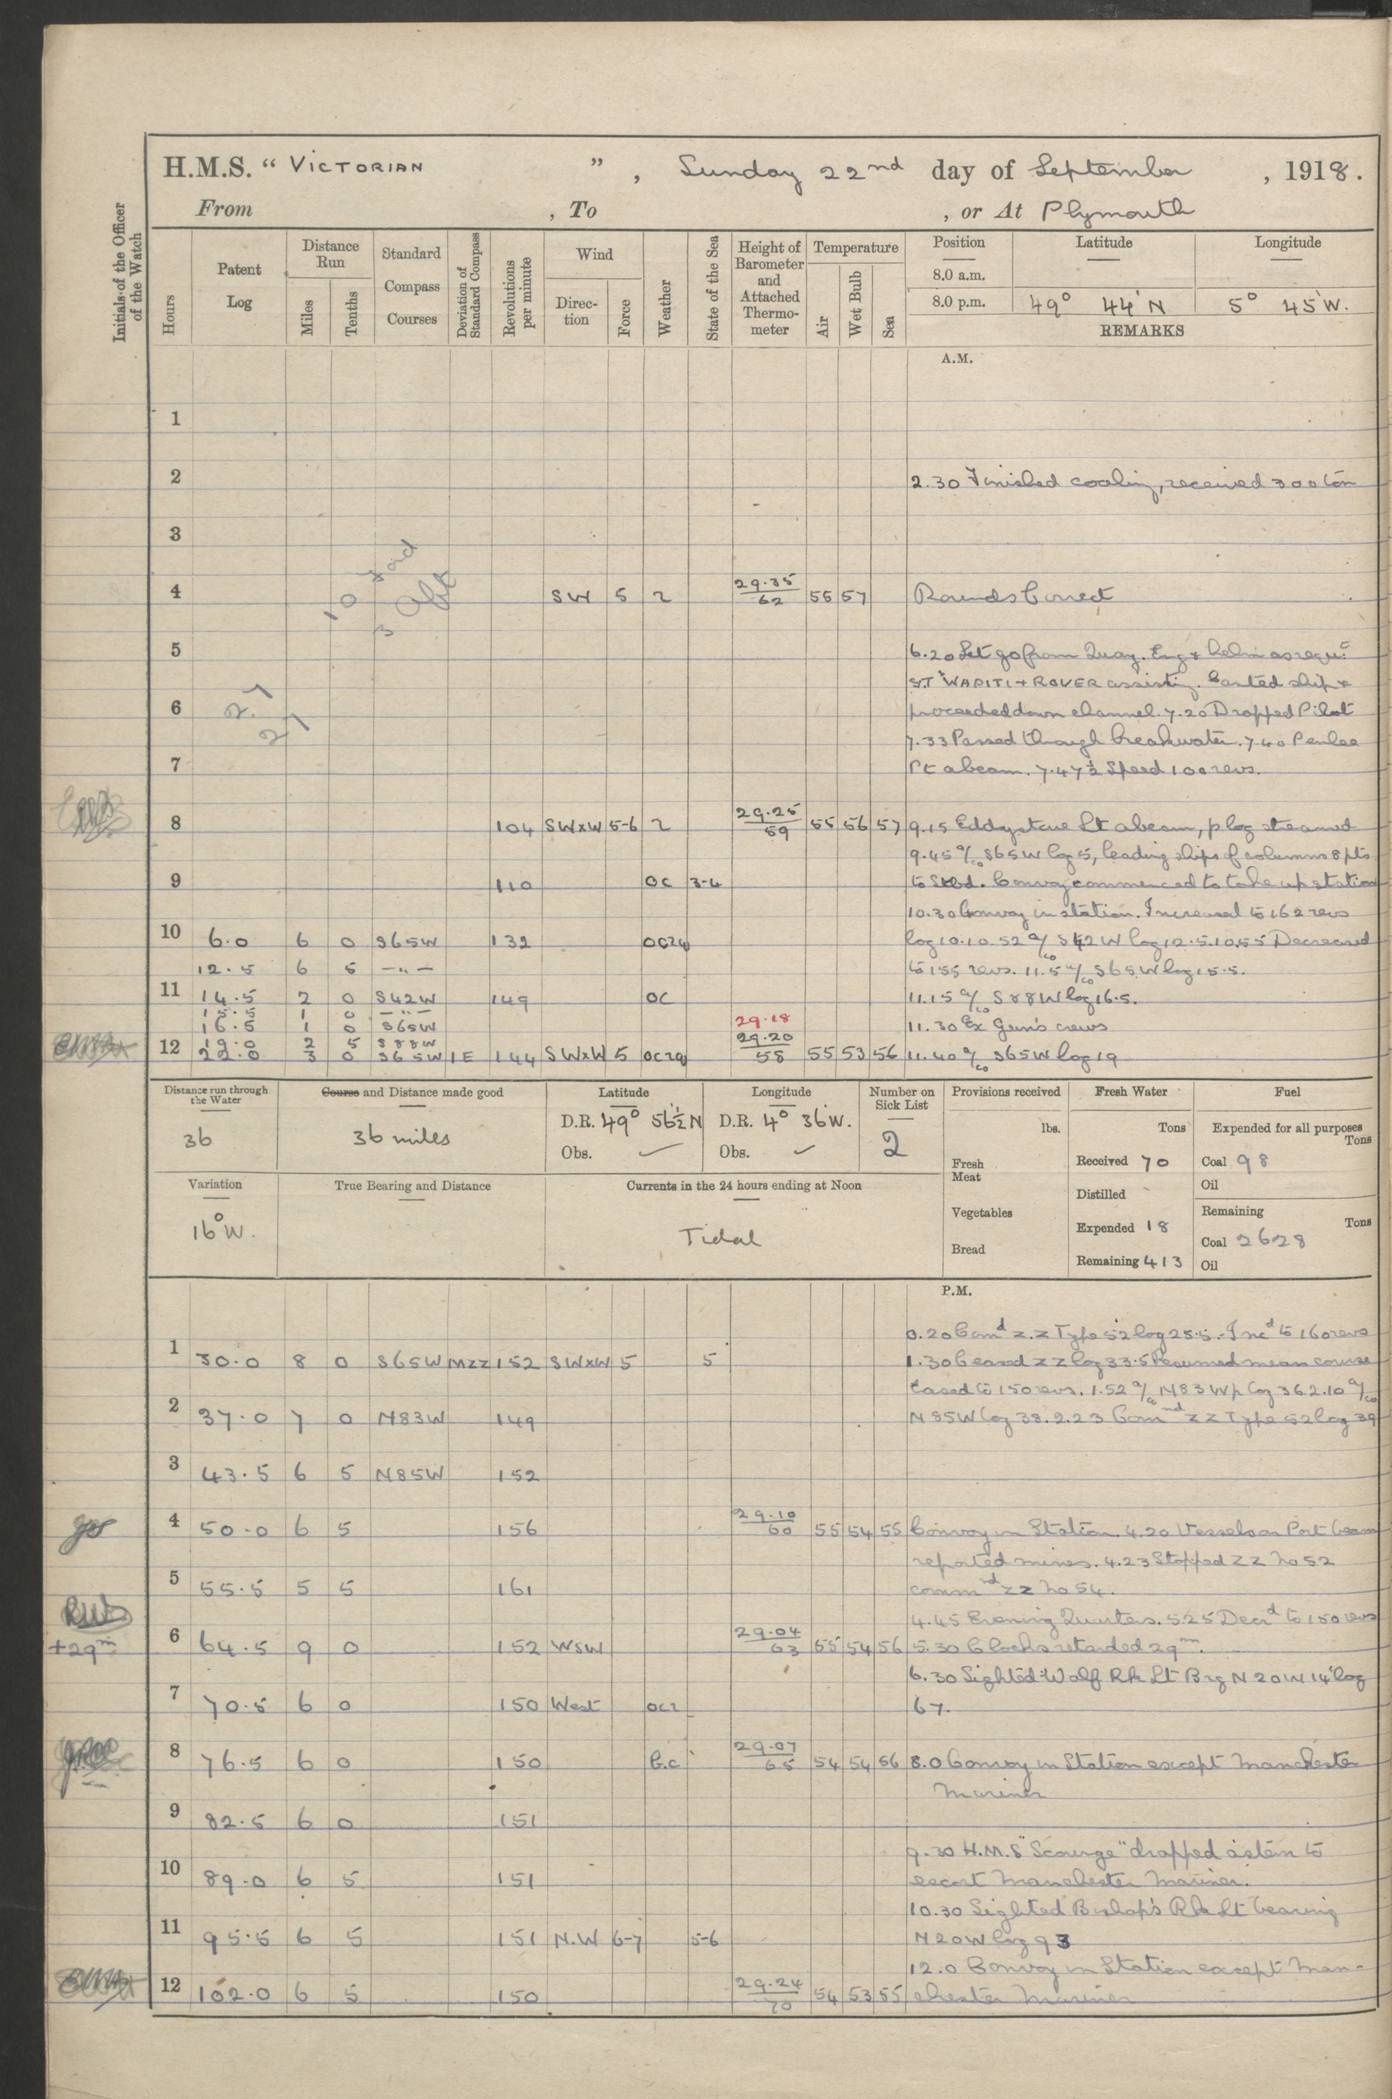 H.M.S. “ VICTORIAN ” , Sunday 22nd day of September , 1918.
From , To , or At Plymouth
Initials of the Officer of the Watch
Hours
Patent Log
Distance Run
Miles
Tenths
Standard Compass Courses
Deviation of Standard Compass
Revolutions per minute
Wind
Direc- tion
Force
Weather
State of the Sea
Height of Barometer and Attached Thermo- meter
Temperature
Air
Wet Bulb
Sea
Position Latitude Longitude
8.0 a.m.
8.0 p.m. 49° 44' N 5° 45' W.
REMARKS
A.M.
1
2 2.30 Finished coaling, received 300 ton
3
10 Ford
3 Aft
4 SW 5 2 29.35/62 55 57 Rounds Correct
5 6.20 Let go from Quay. Eng & helm as requd
ST "WAPITI & ROVER assisting. Canted ship &
6 27 proceeded down channel. 7.20 Dropped Pilot
27 7.33 Passed through breakwater. 7.40 Penlee
7 Pt abeam. 7.47½ Speed 100 revs.
8 104 SWxW 5-6 2 29.25/59 55 56 57 9.15 Eddystone Lt abeam, p log streamed
9.45 a/co S65W log 5, leading ships of columns 8 pts
9 110 OC 3-4 to Stbd. Convoy commenced to take up station
10.30 Convoy in station. Increased to 162 revs
10 6.0 6 0 S65W 132 log 10.10.52 a/co S42W log 12.5.10.55 Decreased
12.5 6 5 -"- to 155 revs. 11.5 a/co S65W log 15.5.
11 14.5 2 0 S42W 149 OC 11.15 a/co S88W log 16.5.
15.5 1 0 -"-
16.5 1 0 S65W 29.18 11.30 Ex Gun's crews
19.0 2 5 S88W
12 22.0 3 0 S65W 1E 144 SWxW 5 29.20/58 55 53 56 11.40 a/co S65W log 19
Distance run through the Water
36
Course and Distance made good
36 miles
Latitude
D.R. 49° 56½' N
Obs. ✓
Longitude
D.R. 4° 36' W.
Obs. ✓
Number on Sick List
2
Provisions received
lbs.
Fresh Meat
Vegetables
Bread
Fresh Water
Tons
Received 70
Distilled
Expended 18
Remaining 413
Fuel
Expended for all purposes
Tons
Coal 98
Oil
Remaining
Tons
Coal 2628
Oil
Variation
16° W.
True Bearing and Distance
Currents in the 24 hours ending at Noon
Tidal
P.M.
0.20 Comd z.z Type 52 log 25.5. Incd to 160 revs
1 30.0 8 0 S65W MZZ 152 SWxW 5 5 1.30 Ceased ZZ log 33.5 Resumed mean course
Eased to 150 revs. 1.52 a/co N83W p log 36.2.10 a/co
2 37.0 7 0 N83W 149 N85W log 38.2.23 Commd ZZ Type 52 log 39
3 43.5 6 5 N85W 152
4 50.0 6 5 156 29.10/60 55 54 55 Convoy in Station. 4.20 Vessels on Port beam
reported mines. 4.23 Stopped ZZ No 52
5 55.5 5 5 161 commd ZZ No 54.
4.45 Evening Quarters. 5.25 Decrd to 150 revs
+29m 6 64.5 9 0 152 WSW 29.04/63 55 54 56 5.30 Clocks retarded 29m.
6.30 Sighted Wolf Rk Lt Brg N20W 14' log
7 70.5 6 0 150 West 67.
8 76.5 6 0 150 b.c 29.07/65 54 54 56 8.0 Convoy in Station except Manchester
Mariner
9 82.5 6 0 151
9.30 H.M.S "Scourge" dropped astern to
10 89.0 6 5 151 escort Manchester Mariner.
10.30 Sighted Bishop's Rk Lt bearing
11 95.5 6 5 151 N.W 6-7 5-6 N20W log 93
12.0 Convoy in Station except Man-
12 102.0 6 5 150 29.24/70 54 53 55 chester Mariner